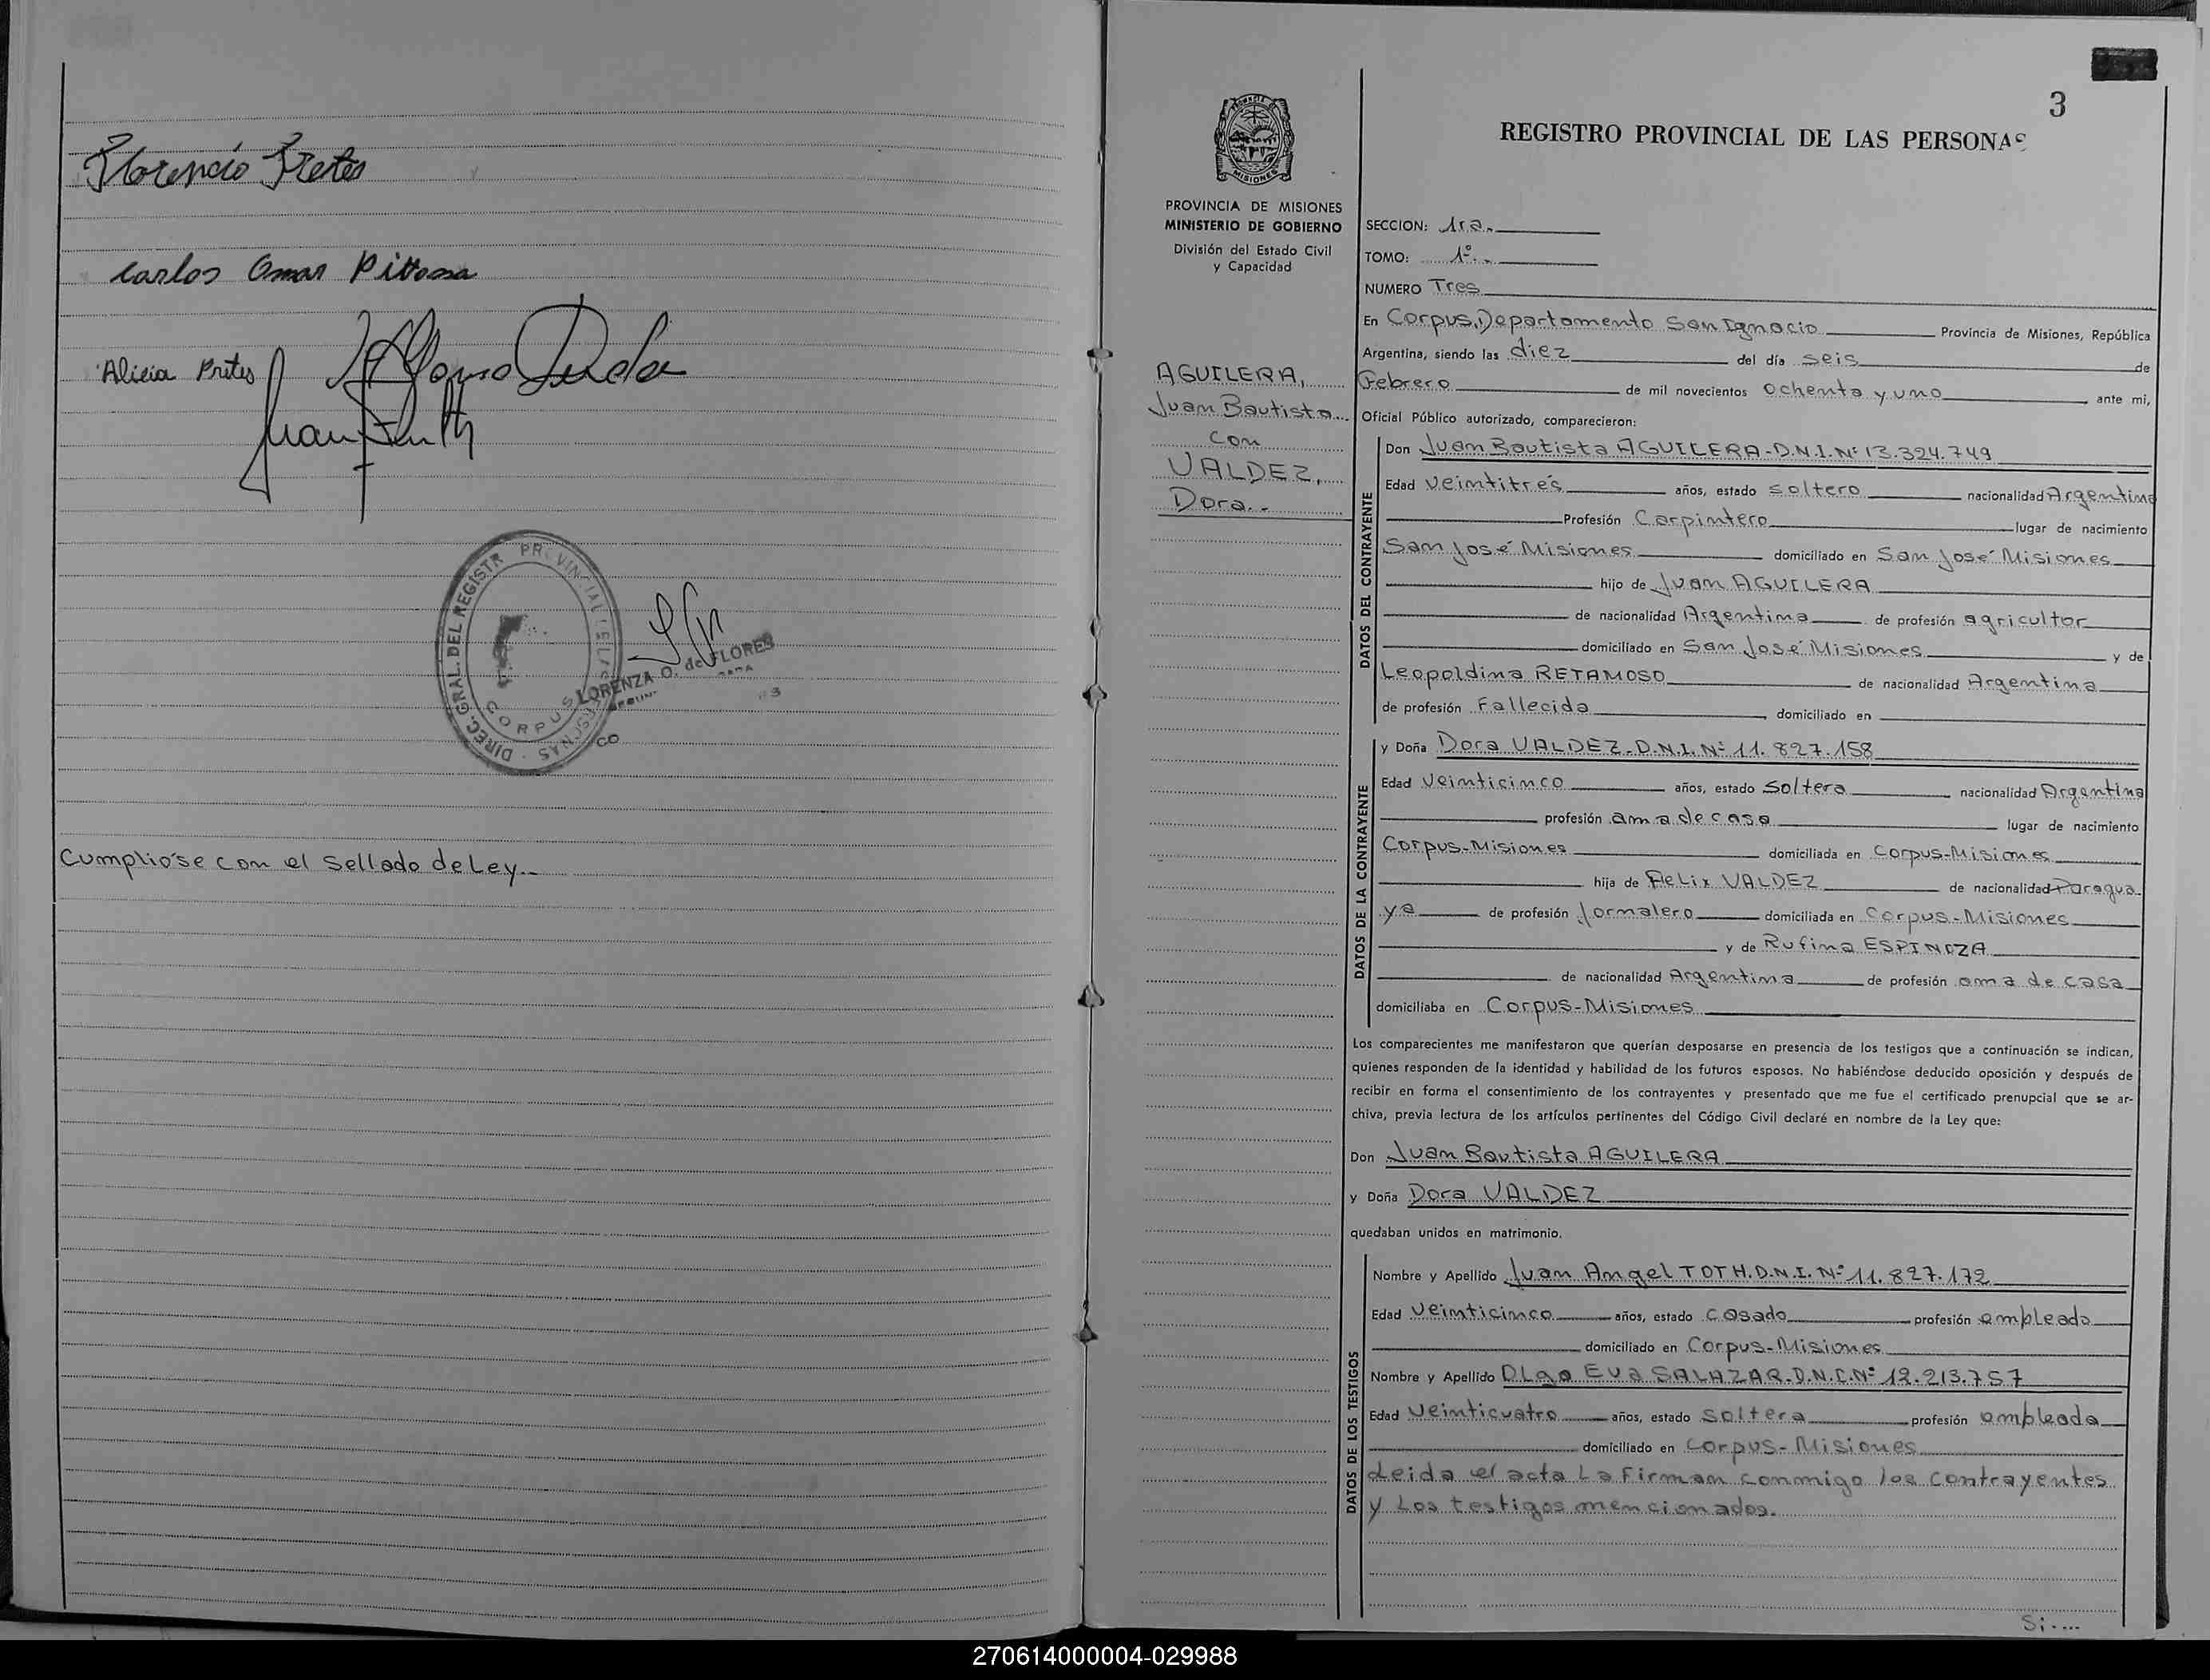 Florencio Fretes
Carlos Omar Pittona
Alicia Prites
DIREC. GRAL. DEL REGISTR PROVINCIAL DE LAS PERSONAS
CORPUS
LORENZA O. de FLORES
Cumplióse con el sellado de Ley..
3
REGISTRO PROVINCIAL DE LAS PERSONAS
PROVINCIA DE MISIONES
MINISTERIO DE GOBIERNO
División del Estado Civil
y Capacidad
SECCION: 1ra.
TOMO: 1º..
NUMERO Tres
En Corpus, Departamento San Ignacio Provincia de Misiones, República
Argentina, siendo las diez del día seis de
Febrero de mil novecientos ochenta y uno ante mi,
Oficial Público autorizado, comparecieron:
AGUILERA,
Juan Bautista
con
VALDEZ,
Dora..
DATOS DEL CONTRAYENTE
Don Juan Bautista AGUILERA-D.N.I.Nº 13.324.749
Edad veintitrés años, estado soltero nacionalidad Argentina
Profesión Carpintero lugar de nacimiento
San José Misiones domiciliado en San José Misiones
hijo de Juan AGUILERA
de nacionalidad Argentina de profesión agricultor
domiciliado en San José Misiones y de
Leopoldina RETAMOSO de nacionalidad Argentina
de profesión Fallecida domiciliado en
DATOS DE LA CONTRAYENTE
y Doña Dora VALDEZ-D.N.I.Nº 11.827.158
Edad veinticinco años, estado soltera nacionalidad Argentina
profesión ama de casa lugar de nacimiento
Corpus-Misiones domiciliada en Corpus-Misiones
hija de Felix VALDEZ de nacionalidad Paragua
ya de profesión Jornalero domiciliada en Corpus-Misiones
y de Rufina ESPINOZA
de nacionalidad Argentina de profesión ama de casa
domiciliaba en Corpus-Misiones
Los comparecientes me manifestaron que querían desposarse en presencia de los testigos que a continuación se indican,
quienes responden de la identidad y habilidad de los futuros esposos. No habiéndose deducido oposición y después de
recibir en forma el consentimiento de los contrayentes y presentado que me fue el certificado prenupcial que se ar-
chiva, previa lectura de los artículos pertinentes del Código Civil declaré en nombre de la Ley que:
Don Juan Bautista AGUILERA
y Doña Dora VALDEZ
quedaban unidos en matrimonio.
DATOS DE LOS TESTIGOS
Nombre y Apellido Juan Angel TOTH.D.N.I.Nº 11.827.172
Edad veinticinco años, estado casado profesión empleado
domiciliado en Corpus-Misiones
Nombre y Apellido Eva SALAZAR-D.N.I.Nº 12.213.757
Edad veinticuatro años, estado soltera profesión empleada
domiciliado en Corpus-Misiones
Leida el acta La Firman conmigo los contrayentes
y Los testigos mencionados.
Si....
270614000004-029988